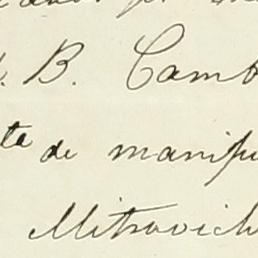 B. Camb
te de manifu
Mitrovich